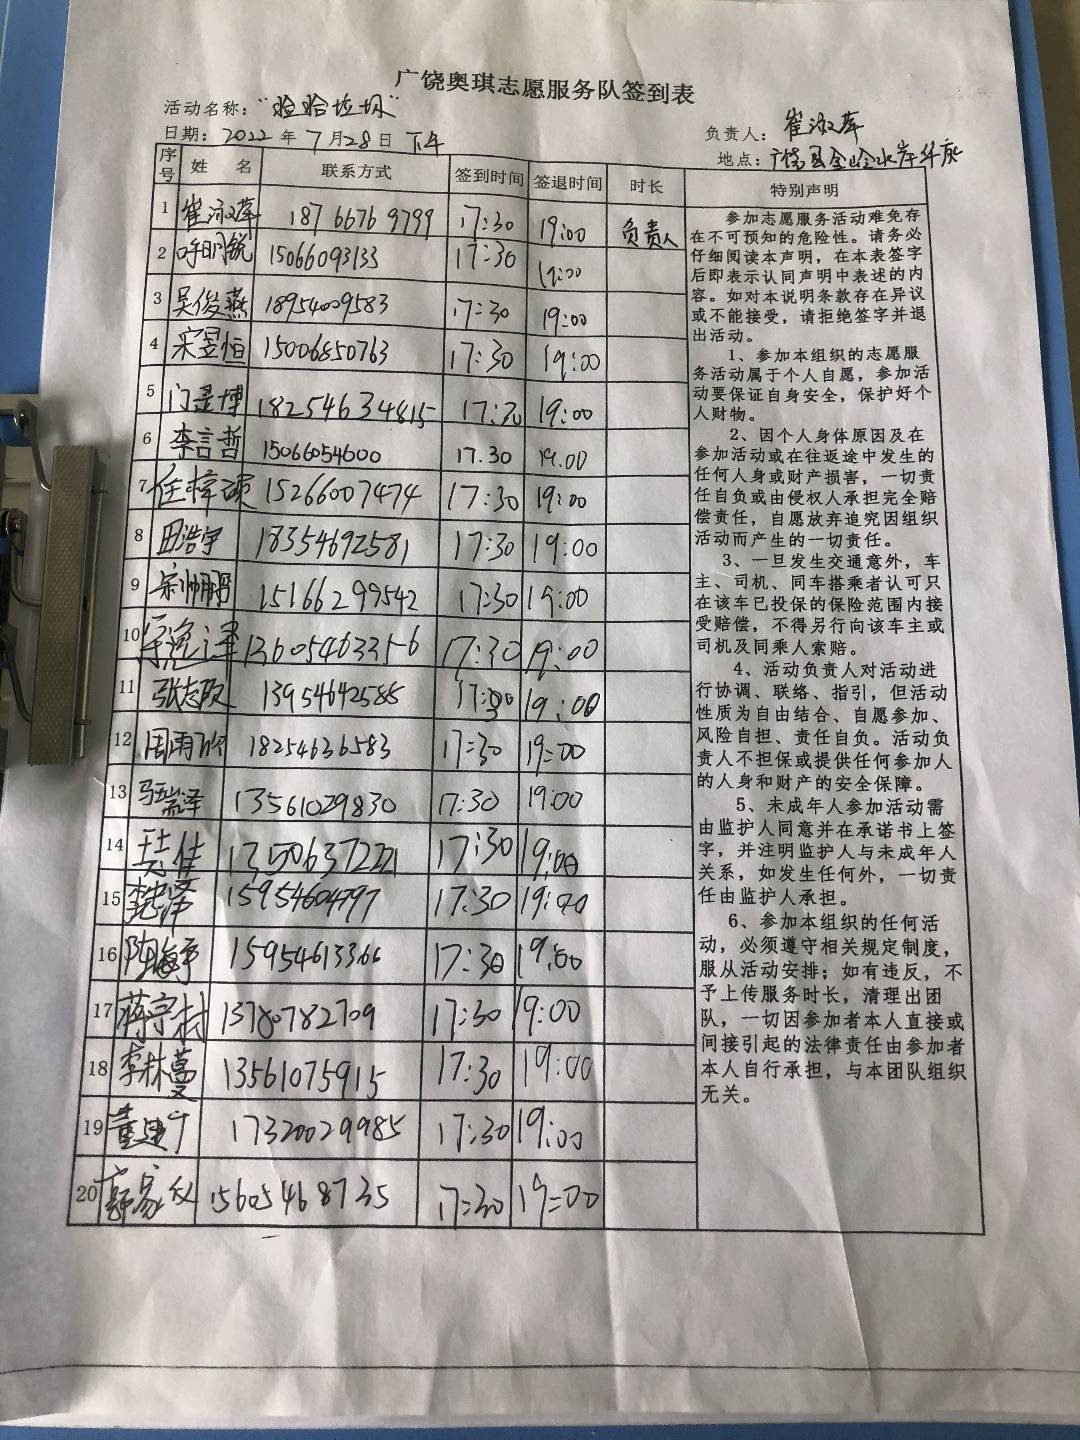 广饶奥琪志愿服务队签到表
活动名称：“捡拾垃圾”
负责人：崔淑萍
日期：2022年7月28日 下午
地点：广饶县金岭水岸华庭
序号 姓名 联系方式 签到时间 签退时间 时长 特别声明
1 崔淑萍 18766769799 17:30 19:00 负责人
2 呼明锐 15066093133 17:30 19:00
3 吴俊燕 18954009583 17:30 19:00
4 宋昱恒 15006850763 17:30 19:00
5 18254634815 17:30 19:00
6 李言哲 15066054600 17.30 19.00
7 任梓硕 15266007474 17:30 19:00
8 田浩宇 18354692581 17:30 19:00
9 宗帅鹏 15166299542 17:30 19:00
10 13605463356 17:30 19:00
11 张志欣 13954642585 17:30 19:00
12 周雨欣 18254636583 17:30 19:00
13 13561029830 17:30 19:00
14 17:30 19:00
15 15954604797 17:30 19:00
16 15954613366 17:30 19:00
17 蒋宗村 13780782709 17:30 19:00
18 李林蔓 13561075915 17:30 19:00
19 17320029985 17:30 19:00
20 15605468735 17:30 19=00
参加志愿服务活动难免存
在不可预知的危险性。请务必
仔细阅读本声明，在本表签字
后即表示认同声明中表述的内
容。如对本说明条款存在异议
或不能接受，请拒绝签字并退
出活动。
1、参加本组织的志愿服
务活动属于个人自愿，参加活
动要保证自身安全，保护好个
人财物。
2、因个人身体原因及在
参加活动或在往返途中发生的
任何人身或财产损害，一切责
任自负或由侵权人承担完全赔
偿责任，自愿放弃追究因组织
活动而产生的一切责任。
3、一旦发生交通意外，车
主、司机、同车搭乘者认可只
在该车已投保的保险范围内接
受赔偿，不得另行向该车主或
司机及同乘人索赔。
4、活动负责人对活动进
行协调、联络、指引，但活动
性质为自由结合、自愿参加、
风险自担、责任自负。活动负
责人不担保或提供任何参加人
的人身和财产的安全保障。
5、未成年人参加活动需
由监护人同意并在承诺书上签
字，并注明监护人与未成年人
关系，如发生任何外，一切责
任由监护人承担。
6、参加本组织的任何活
动，必须遵守相关规定制度，
服从活动安排；如有违反，不
予上传服务时长，清理出团
队，一切因参加者本人直接或
间接引起的法律责任由参加者
本人自行承担，与本团队组织
无关。